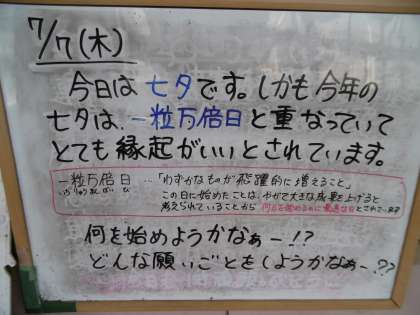 7/7(木)
今日は 七夕です。しかも今年の
七夕は、一粒万倍日と重なっていて
とても縁起がいいとされています。
一粒万倍日…「わずかなものが飛躍的に増えること」
いちりゅうまんばいび
この日に始めたことは、やがて大きな成果を上げると
考えられていることから 何事を始めるのに最適な日とされています
何を始めようかなぁー!?
どんな願いごとをしようかなぁー??